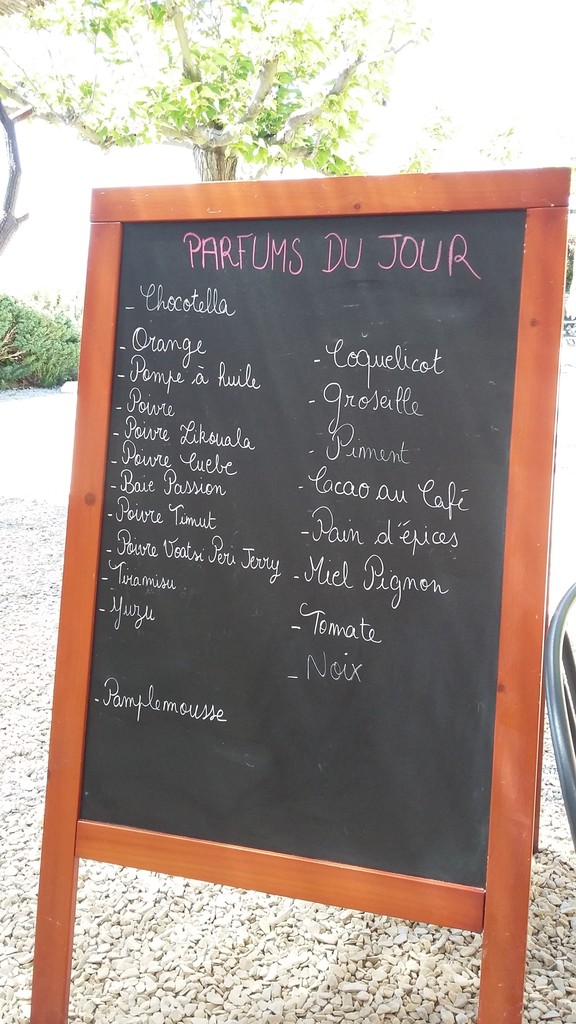 PARFUMS DU JOUR
- Chocotella
- Orange
- Pompe à huile
- Poivre
- Poivre Likouala
- Poivre Cuebe
- Baie Passion
- Poivre Timut
- Poivre Voatsi Peri Jerry
- Tiramisu
- Yuzu
- Pamplemousse
- Coquelicot
- Groseille
- Piment
- Cacao au Café
- Pain d'épices
- Miel Pignon
- Tomate
- Noix